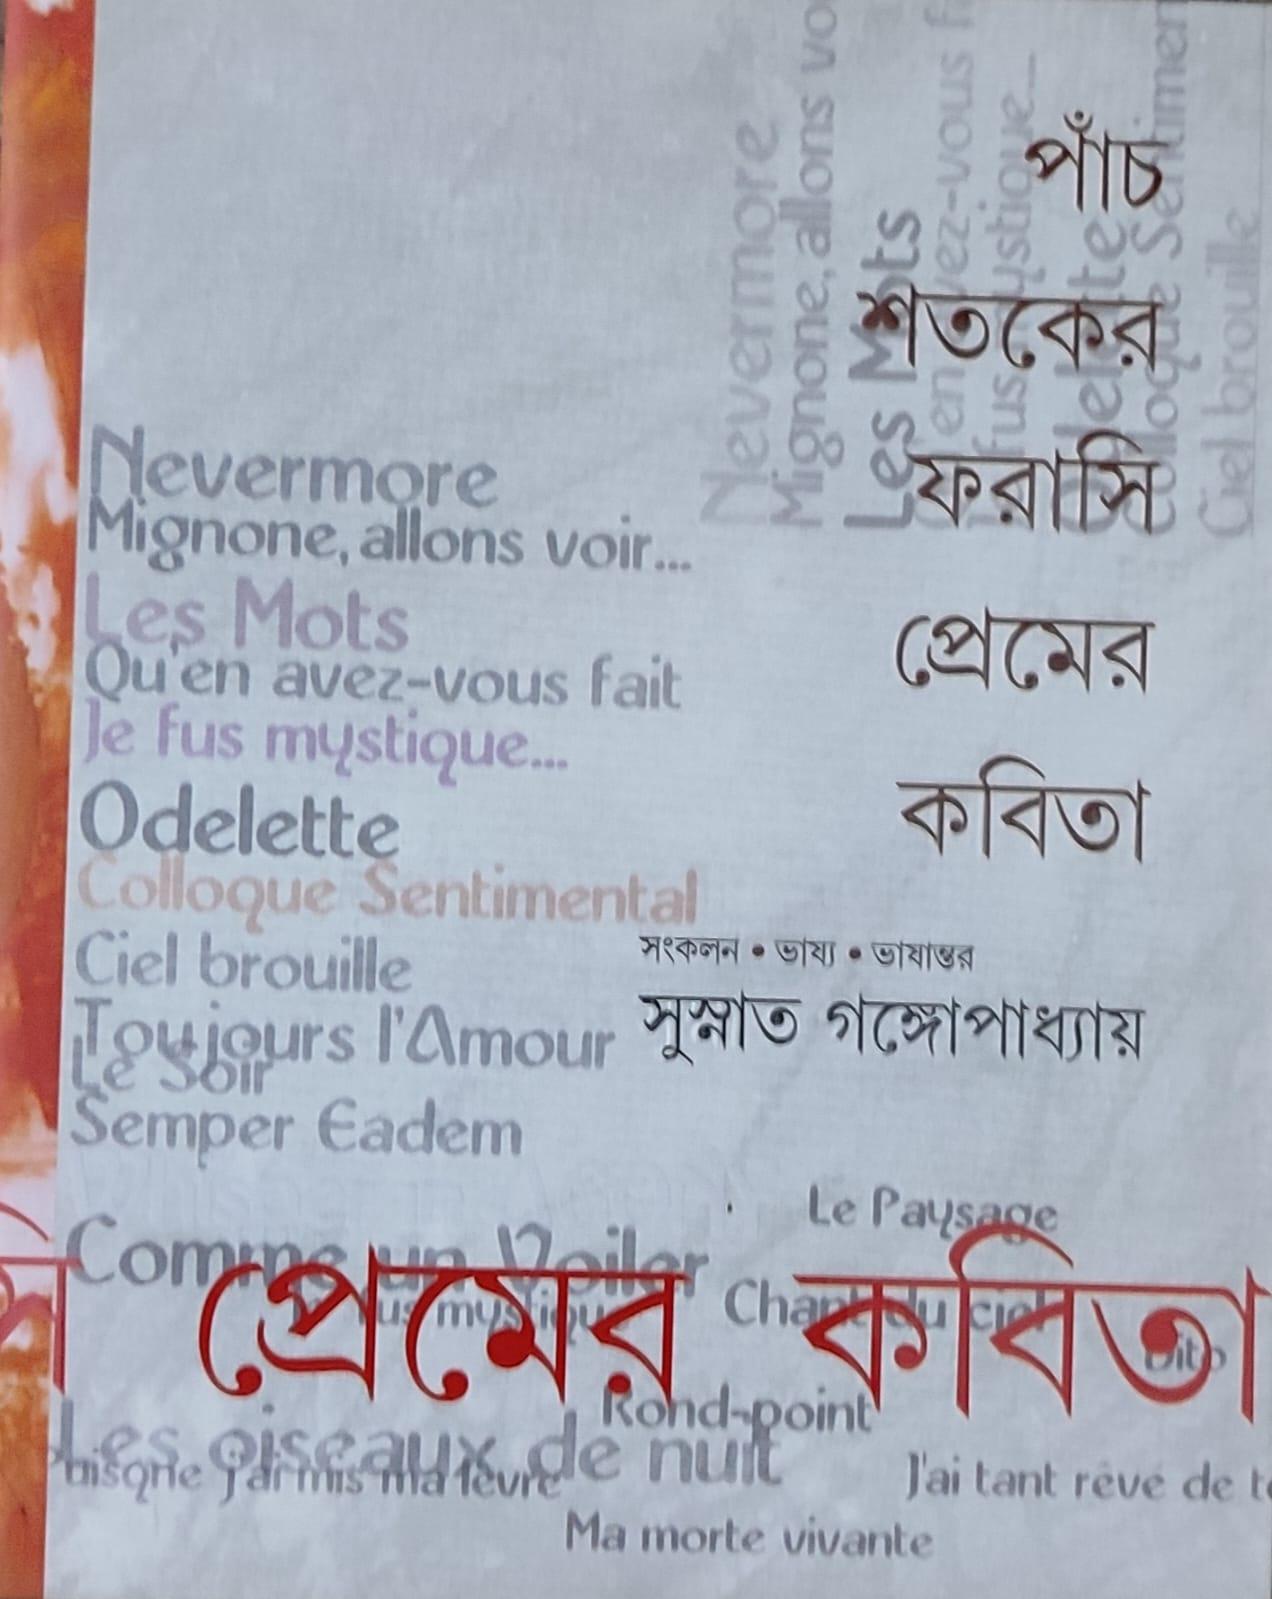 Nevermore
Mignone, allons vo
Les Mots
fus mystique...
Ciel brouille
পাঁচ
শতকের
ফরাসি
প্রেমের
কবিতা
Nevermore
Mignone, allons voir...
Les Mots
Qu'en avez-vous fait
Je fus mystique...
Odelette
Colloque Sentimental
Ciel brouille
Toujours l'Amour
Le Soir
Semper Eadem
সংকলন • ভাষ্য • ভাষান্তর
সুস্নাত গঙ্গোপাধ্যায়
Le Paysage
Comme un Voiler
Chant du ciel
প্রেমের কবিতা
Rond-point
Les oiseaux de nuit
J'ai tant rêvé de t
Ma morte vivante